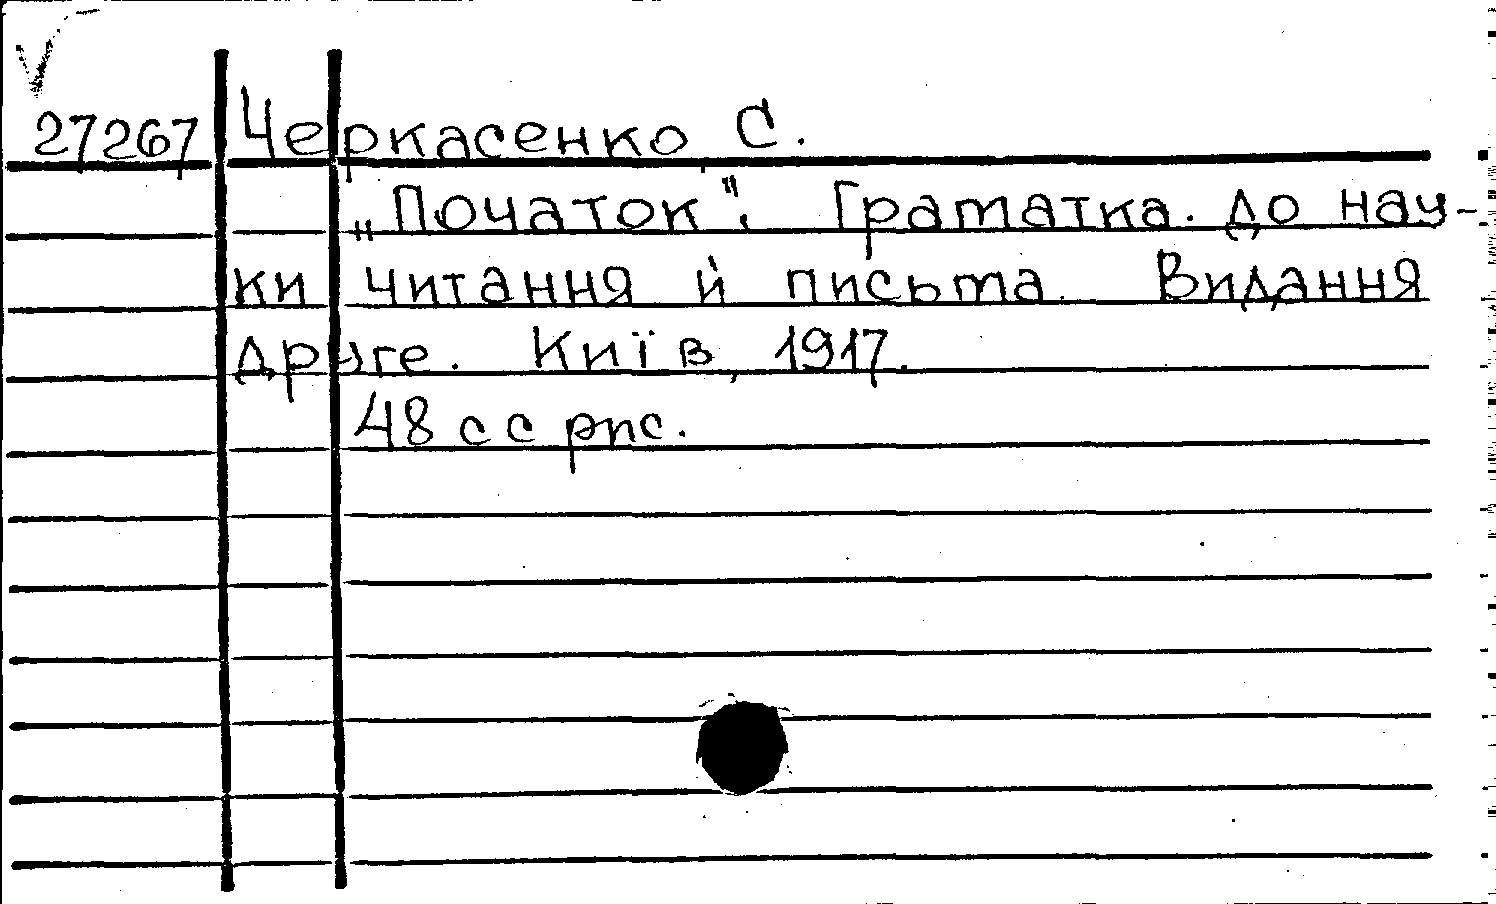 27267 Черкасенко С.
„Початок". Граматка. до нау-
ки читання й письма. Видання
друге. Київ, 1917.
48 с с рпс.